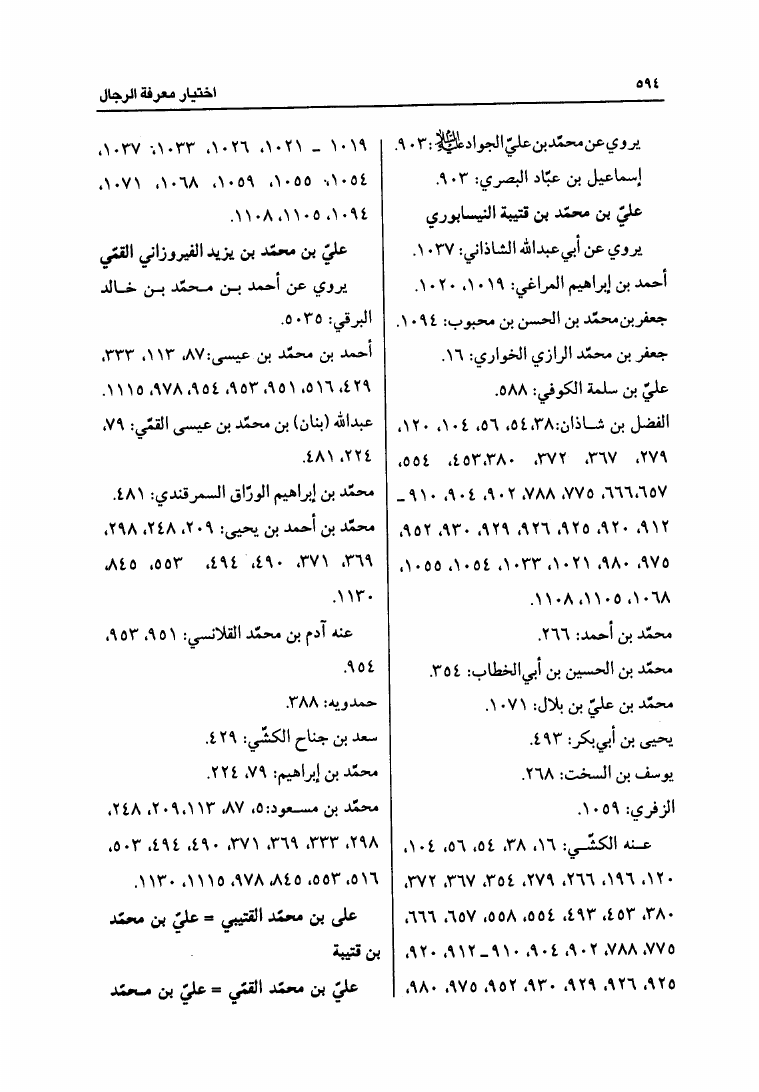 ٥٩٤
اختيار معرفة الرجال
يروي عن محمّد بن عليّ الجواد عليه السلام: ٩٠٣.
إسماعيل بن عبّاد البصري: ٩٠٣.
عليّ بن محمّد بن قتيبة النيسابوري
يروي عن أبي عبدالله الشاذاني: ١٠٣٧.
أحمد بن إبراهيم المراغي: ١٠١٩، ١٠٢٠.
جعفر بن محمّد بن الحسن بن محبوب: ١٠٩٤.
جعفر بن محمّد الرازي الخواري: ١٦.
عليّ بن سلمة الكوفي: ٥٨٨.
الفضل بن شـاذان: ٣٨، ٥٤، ٥٦، ١٠٤، ١٢٠،
٢٧٩، ٣٦٧، ٣٧٢، ٣٨٠، ٤٥٣، ٥٥٤،
٦٥٧، ٦٦٦، ٧٧٥، ٧٨٨، ٩٠٢، ٩٠٤، ٩١٠ ـ
٩١٢، ٩٢٠، ٩٢٥، ٩٢٦، ٩٢٩، ٩٣٠، ٩٥٢،
٩٧٥، ٩٨٠، ١٠٢١، ١٠٣٣، ١٠٥٤، ١٠٥٥،
١٠٦٨، ١١٠٥، ١١٠٨.
محمّد بن أحمد: ٢٦٦.
محمّد بن الحسين بن أبي الخطاب: ٣٥٤.
محمّد بن عليّ بن بلال: ١٠٧١.
يحيى بن أبي بكر: ٤٩٣.
يوسف بن السخت: ٢٦٨.
الزفري: ١٠٥٩.
عـنه الكشّـي: ١٦، ٣٨، ٥٤، ٥٦، ١٠٤،
١٢٠، ١٩٦، ٢٦٦، ٢٧٩، ٣٥٤، ٣٦٧، ٣٧٢،
٣٨٠، ٤٥٣، ٤٩٣، ٥٥٤، ٥٥٨، ٦٥٧، ٦٦٦،
٧٧٥، ٧٨٨، ٩٠٢، ٩٠٤، ٩١٠ ـ ٩١٢، ٩٢٠،
٩٢٥، ٩٢٦، ٩٢٩، ٩٣٠، ٩٥٢، ٩٧٥، ٩٨٠،
١٠١٩ ـ ١٠٢١، ١٠٢٦، ١٠٣٣، ١٠٣٧،
١٠٥٤، ١٠٥٥، ١٠٥٩، ١٠٦٨، ١٠٧١،
١٠٩٤، ١١٠٥، ١١٠٨.
عليّ بن محمّد بن يزيد الفيروزاني القمّي
يروي عن أحمد بـن مـحمّد بـن خـالد
البرقي: ٥٠٣٥.
أحمد بن محمّد بن عيسى: ٨٧، ١١٣، ٣٣٣،
٤٢٩، ٥١٦، ٩٥١، ٩٥٣، ٩٥٤، ٩٧٨، ١١١٥.
عبدالله (بنان) بن محمّد بن عيسى القمّي: ٧٩،
٢٢٤، ٤٨١.
محمّد بن إبراهيم الورّاق السمرقندي: ٤٨١.
محمّد بن أحمد بن يحيى: ٢٠٩، ٢٤٨، ٢٩٨،
٣٦٩، ٣٧١، ٤٩٠، ٤٩٤، ٥٥٣، ٨٤٥،
١١٣٠.
عنه آدم بن محمّد القلانسي: ٩٥١، ٩٥٣،
٩٥٤.
حمدويه: ٣٨٨.
سعد بن جناح الكشّي: ٤٢٩.
محمّد بن إبراهيم: ٧٩، ٢٢٤.
محمّد بن مسـعود: ٥، ٨٧، ١١٣، ٢٠٩، ٢٤٨،
٢٩٨، ٣٣٣، ٣٦٩، ٣٧١، ٤٩٠، ٤٩٤، ٥٠٣،
٥١٦، ٥٥٣، ٨٤٥، ٩٧٨، ١١١٥، ١١٣٠.
على بن محمّد القتيبي = عليّ بن محمّد
بن قتيبة
عليّ بن محمّد القمّي = عليّ بن مـحمّد